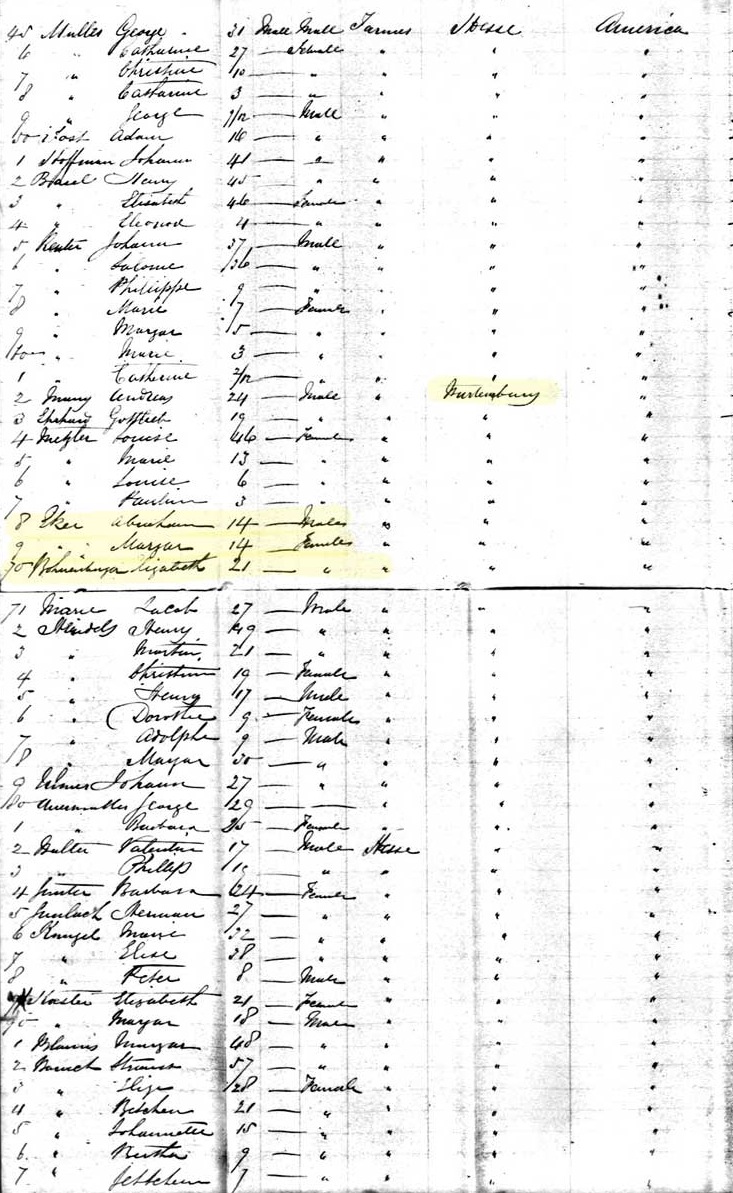 45 Muller George 31 Male Male Farmer Hesse America
6 " Catharine 27 — Female " " "
7 " Christine — " " " "
8 " Catharine 3 — " " " "
9 " George 7/12 — Male " " "
50 Adam 16 — " " " "
1 Hoffman Johann 41 — " " " "
2 Henry 45 — " " " "
3 " Elisabeth 46 — Female " " "
4 " Eleonore 4 — " " " "
5 Johann 37 — Male " " "
6 " Salome 36 — " " " "
7 " Philippe 9 — " " " "
8 " Marie 7 — Female " " "
9 " Margar 5 — " " " "
60 " Marie 3 — " " " "
1 " Catherine /12 — " " " "
2 Andreas 24 — Male " Wurtemburg "
3 Gottlieb 19 — " " " "
4 Metzler Louise 46 — Female " " "
5 " Marie 13 — " " " "
6 " Louise 6 — " " " "
7 " 3 — " " " "
8 Eker Abraham 14 — Males " " "
9 " Margar 14 — Females " " "
70 Elizabeth 21 — " " " "
71 Marie Jacob 27 — Male " " "
2 Henry 49 — " " " "
3 " Martin 21 — " " " "
4 " Christine 19 — Female " " "
5 " Henry 17 — Male " " "
6 " Dorothe 9 — Female " " "
7 " Adolphe 9 — Male " " "
8 " Margar 30 — " " " "
9 Johann 27 — " " " "
80 George 29 — — " " "
1 " Barbara 25 — Female " " "
2 Walter Valentin 17 — Male Hesse " "
3 " Phillip — " " " "
4 Barbara 64 — Female " " "
5 Herman 27 — " " " "
6 Marie 32 — " " " "
7 " Elise 38 — " " " "
8 " Peter 8 — Male " " "
Elizabeth 21 — Female " " "
90 " Margar 18 — Male " " "
1 Margar 48 — " " " "
2 Baruch Strauss 57 — " " " "
3 " Elize 28 — Female " " "
4 " Betchen 21 — " " " "
5 " Johannette 15 — " " " "
6 " Bertha 9 — " " " "
7 " Jettchen 7 — " " " "